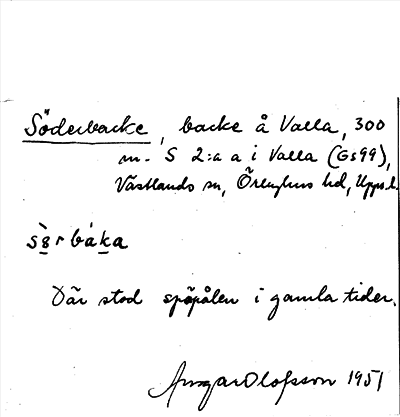 Söderbacke, backe å Valla, 300
m. S 2:a a i Valla (Gs99),
Västlands sn, Örbyhus hd, Upps. l.
sö̀rbáka
Där stod spöpålen i gamla tider.
Ansgar Olofsson 1951